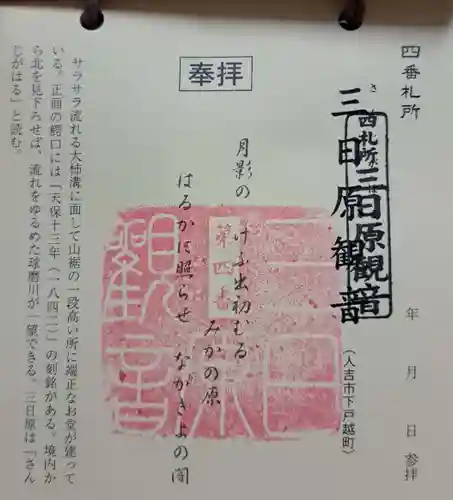 四番札所
三日原観音
さんじがはる
四札所三日原観音
(人吉市下戸越町)
年 月 日 参拝
奉拝
月影の けふ出初むる みかの原
はるかに照らせ ながきよの闇
第四番
三日原観音
サラサラ流れる大柿溝に面して山裾の一段高い所に端正なお堂が建って
いる。正面の鰐口には「天保十三年(一八四二)」の刻銘がある。境内か
ら北を見下ろせば、流れをゆるめた球磨川が一望できる。三日原は「さん
じがはる」と読む。